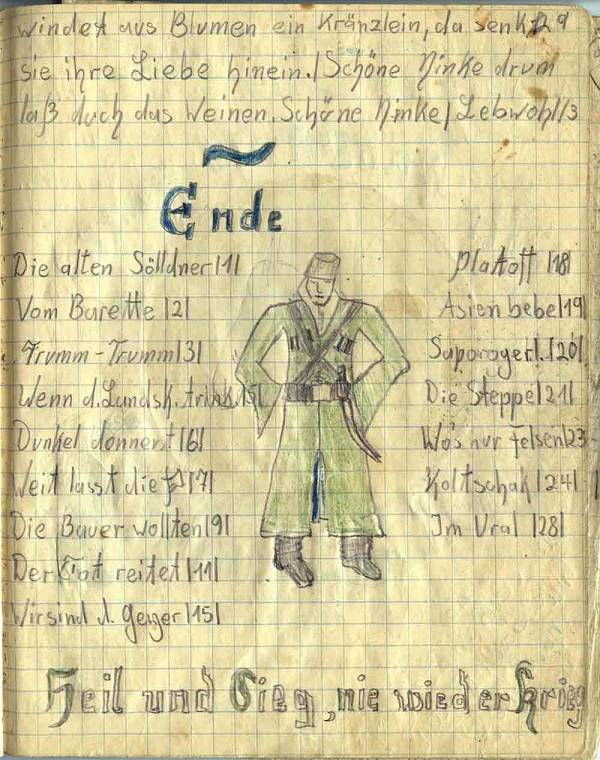 windet aus Blumen ein Kränzlein, da senkt 29
sie ihre Liebe hinein./Schöne Ninke drum
laß doch das Weinen. Schöne Ninke/Lebwohl//3
Ende
Die alten Sölldner|1|
Vom Barette |2|
Trumm-Trumm|3|
Wenn d. Landsk. trink|5|
Dunkel donnerst|6|
Weit lasst die |7|
Die Bauer wollten|9|
Der Tot reitet|11|
Wirsind d. Geyer|15|
Platoff |18|
Asien bebe|19|
Saporoger|.|20|
Die Steppe|21|
Wo's nur Felsen|23
Koltschak|24|
Im Ural |28|
Heil und Sieg, nie wieder Krieg